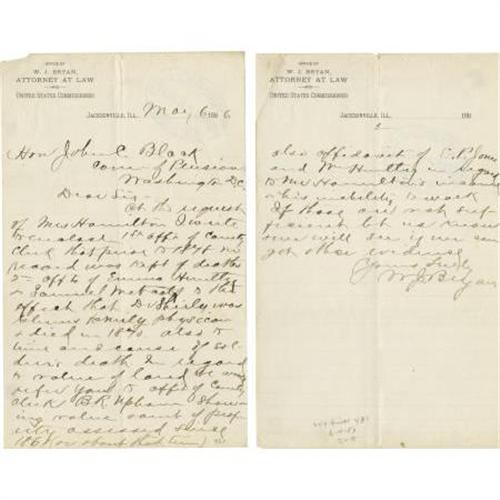 OFFICE OF
W. J. BRYAN,
ATTORNEY AT LAW
UNITED STATES COMMISSIONER
JACKSONVILLE, ILL. May 6 1886
Hon John C. Black
Com of Pensions
Washington DC
Dear Sir
At the request
of Mrs Hamilton I write
to enclose 1st affid of County
Clerk that prior to 1877 no
record was kept of deaths
2d affid of Emma
& Samuel Metcalf to the
effect that Dr Shirly was
family physician
& died in 18 also to
time and cause of sol-
diers death In regard
to value of land we
refer you to affid of County
clerk B.R. Upham show-
ing value of prop-
erty assessed since
186 (or about that time)
OFFICE OF
W. J. BRYAN,
ATTORNEY AT LAW
UNITED STATES COMMISSIONER
JACKSONVILLE, ILL. 188
also affidavit of C. P. Jones
and Wm in regard
to Mr Hamilton's
& his inability to work
If these are not suf-
ficient let us know
and will see if we can
get other evidence
Yours truly
W J Bryan